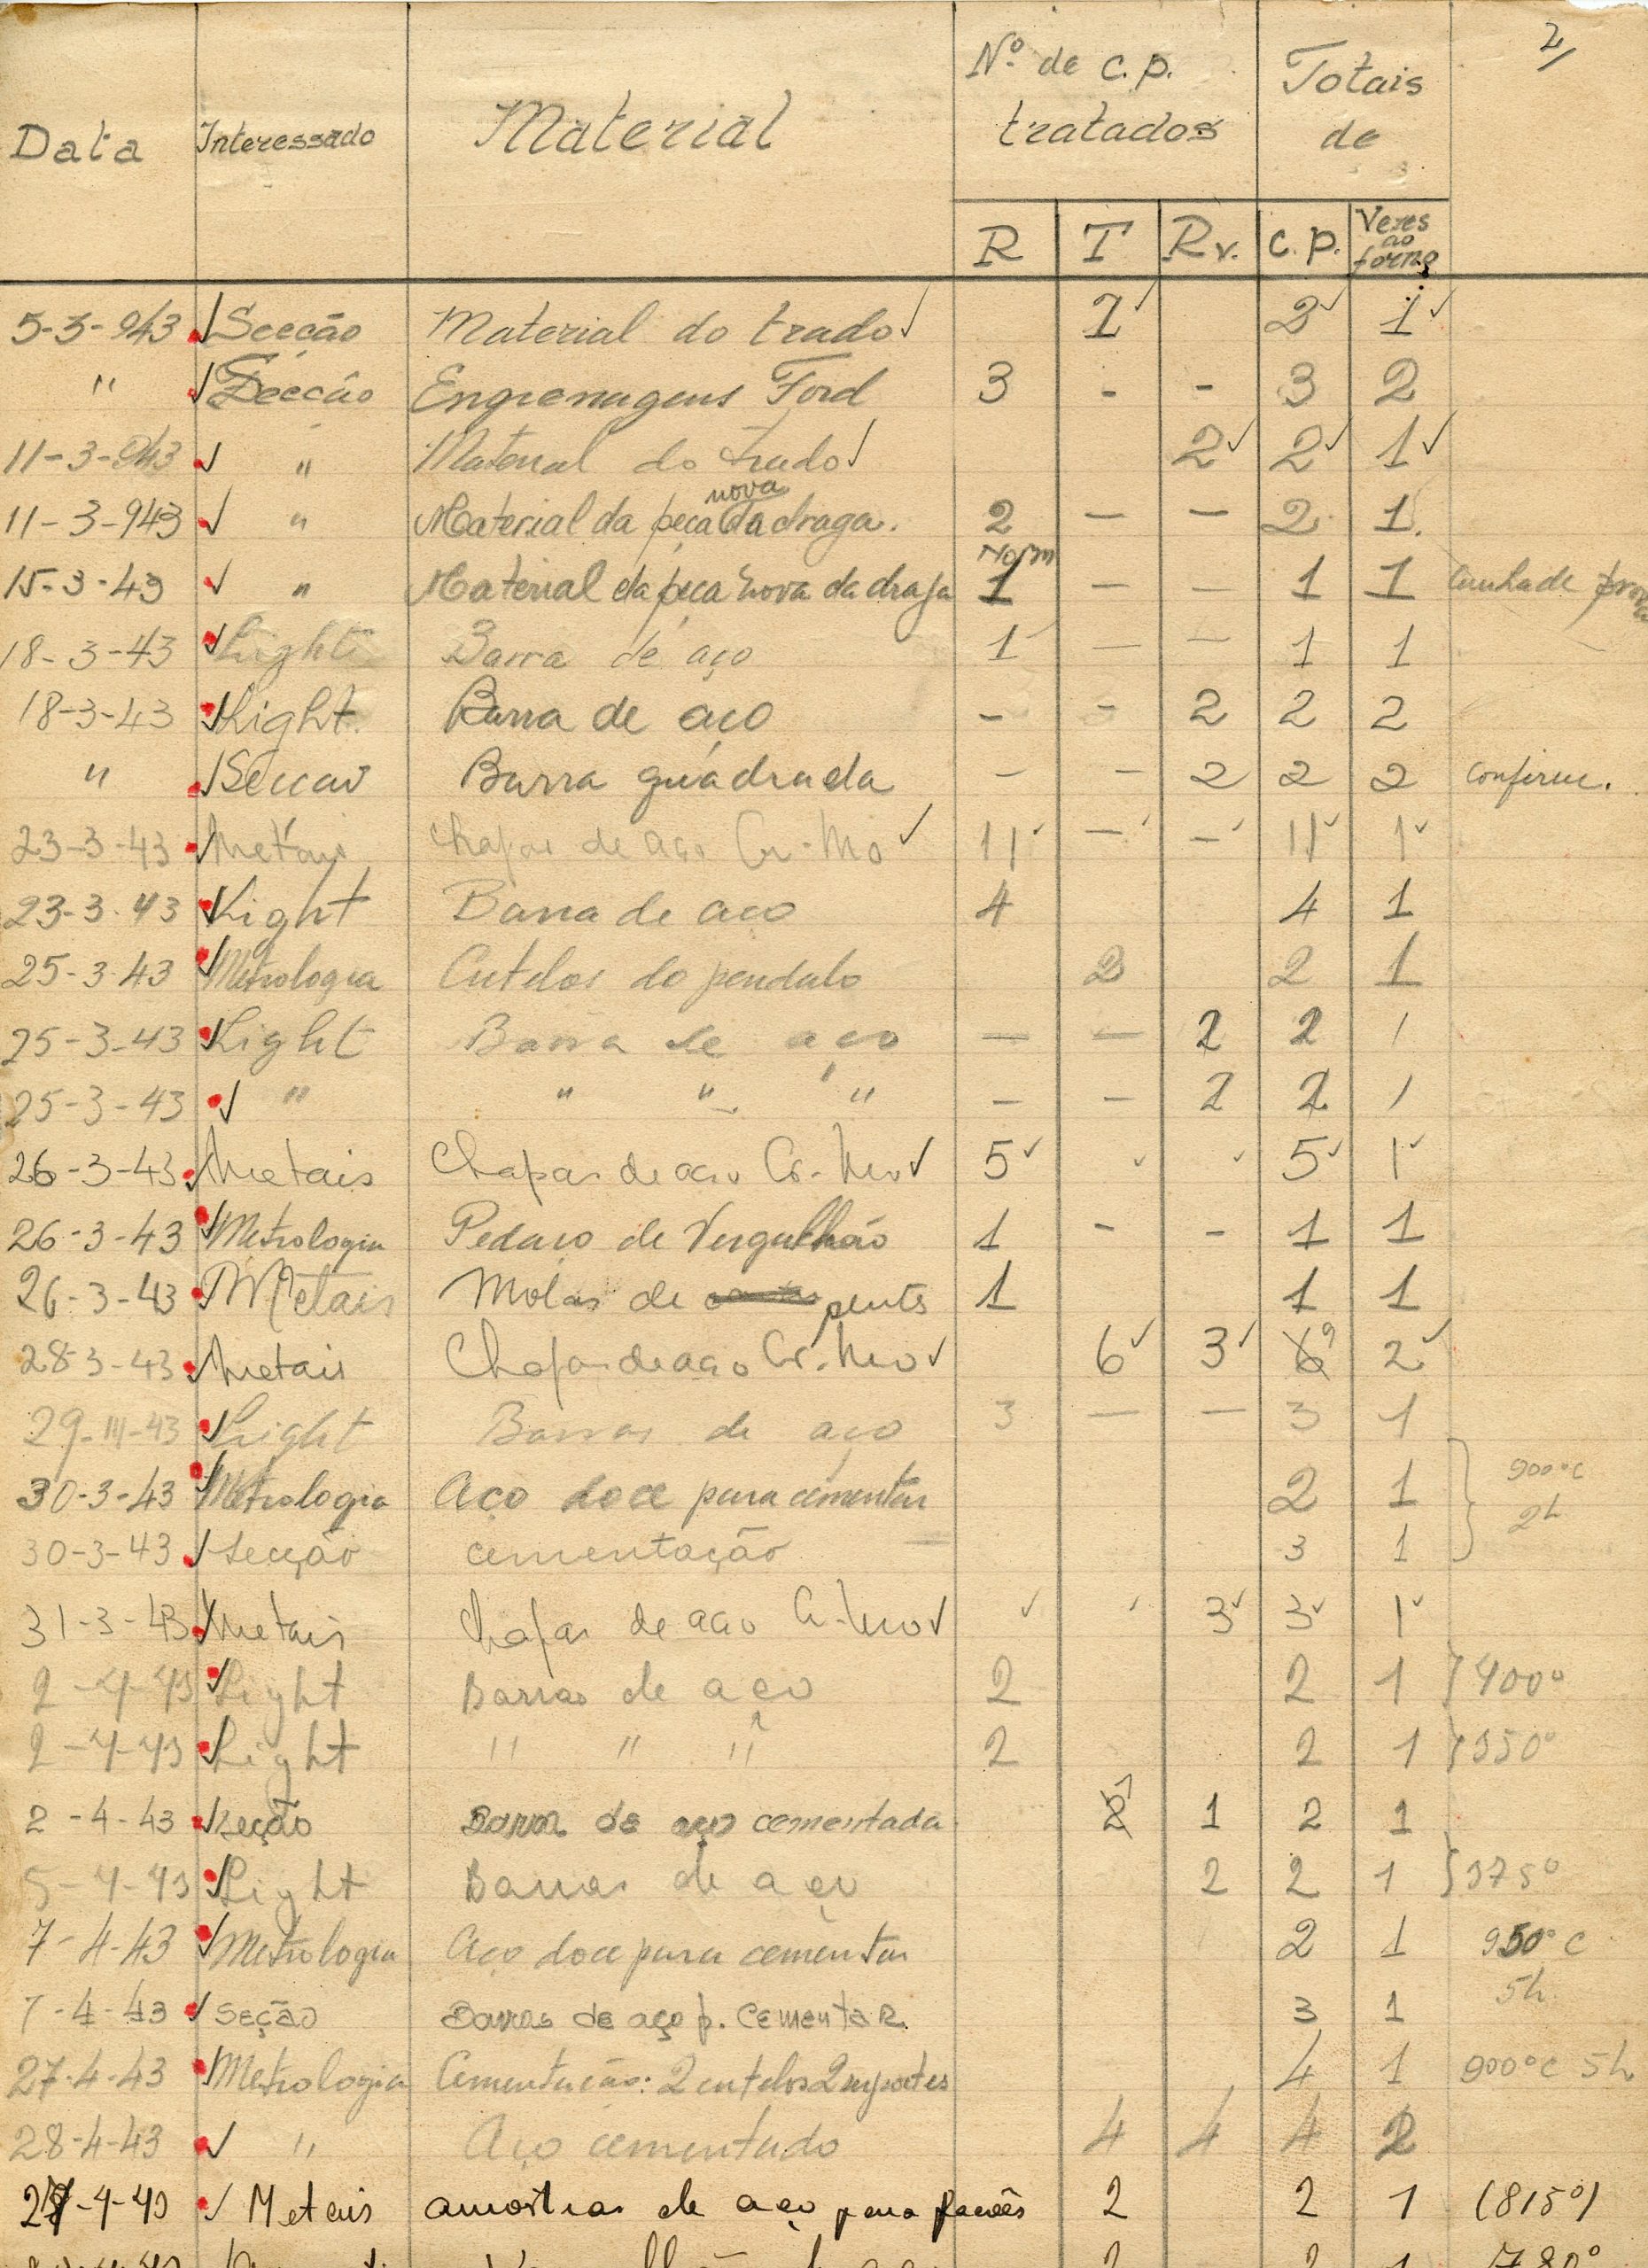 2/
Data Interessado Material Nº de c.p. tratados Totais de
R T Rv. C.P. Vezes ao forno
5-3-943 Secção Material do trado 1 2 1
" Secção Engrenagens Ford 3 - - 3 2
11-3-943 " Material do trado 2 2 1
11-3-943 " Material da peça nova da draga. 2 — — 2 1
15-3-43 " Material da peça nova da draga Norm 1 — — 1 1
18-3-43 Light Barra de aço 1 — — 1 1
18-3-43 Light Barra de aço - - 2 2 2
" Seccao Barra quadrada — — 2 2 2
23-3-43 Metais Chapas de aço Cr-Mo 11 — — 11 1
23-3-43 Light Barra de aço 4 4 1
25-3-43 Metrologia Cutelos do pendulo 2 2 1
25-3-43 Light Barra de aço — — 2 2 1
25-3-43 " " " " — — 2 2 1
26-3-43 Metais Chapas de aço Cr-Mo 5 5 1
26-3-43 Metrologia Pedaço de Vergalhão 1 - - 1 1
26-3-43 Metais Molas de pente 1 1 1
28-3-43 Metais Chapas de aço Cr-Mo 6 3 9 2
29-III-43 Light Barras de aço 3 — — 3 1
30-3-43 Metrologia Aço doce para cementar 2 1 900°C
30-3-43 Secção cementação 3 1 2h
31-3-43 Metais Chapas de aço Cr-Mo 3 3 1
2-4-43 Light Barras de aço 2 2 1 400°
2-4-43 Light " " " 2 2 1 350°
2-4-43 Seção Barra de aço cementada 1 1 2 1
5-4-43 Light Barras de aço 2 2 1 375°
7-4-43 Metrologia Aço doce para cementar 2 1 950°C
7-4-43 Seção Barras de aço p. cementar. 3 1 5h
27-4-43 Metrologia Cementação: 2 cutelos 2 suportes 4 1 900°C 5h
28-4-43 " Aço cementado 4 4 4 2
27-4-43 Metais amostras de aço para facões 2 2 1 (815°)
2 2 1 780°